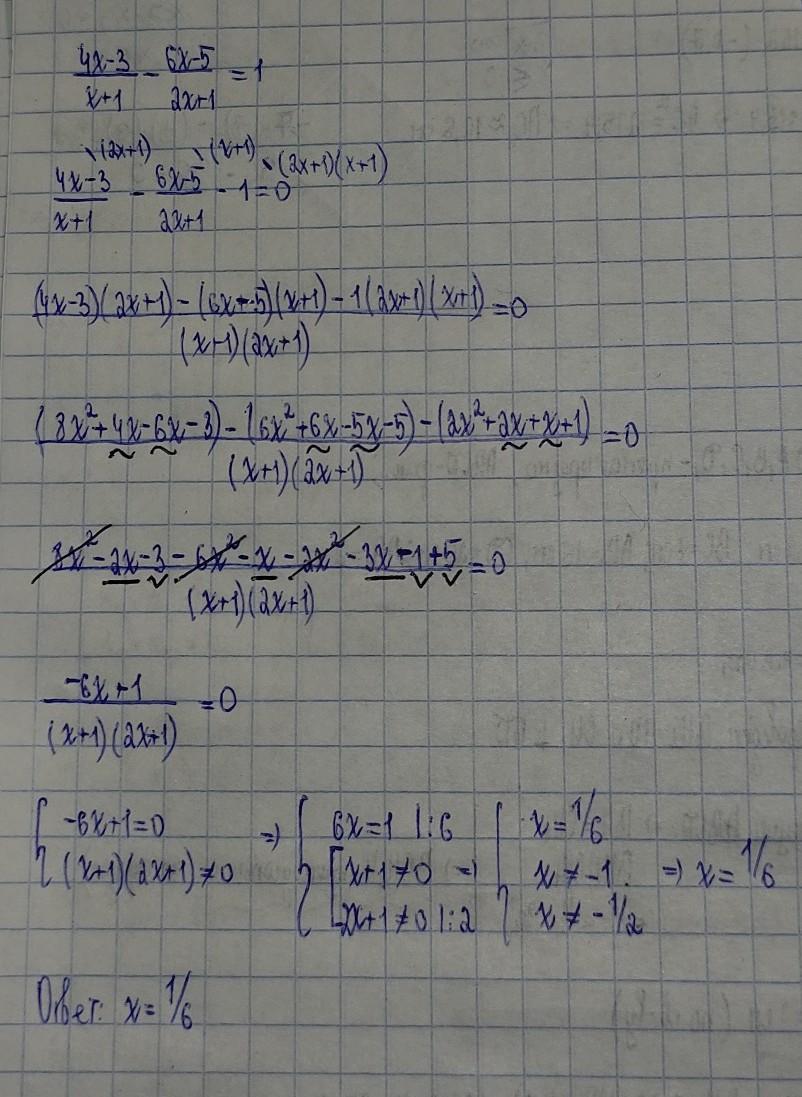 (4x-3)/(x+1) - (6x-5)/(2x+1) = 1
(4x-3)/(x+1) \(2x+1) - (6x-5)/(2x+1) \(x+1) - 1 \(2x+1)(x+1) = 0
((4x-3)(2x+1) - (6x-5)(x+1) - 1(2x+1)(x+1))/((x+1)(2x+1)) = 0
((8x²+4x-6x-3) - (6x²+6x-5x-5) - (2x²+2x+x+1))/((x+1)(2x+1)) = 0
(8x²-2x-3-6x²-x-2x²-3x-1+5)/((x+1)(2x+1)) = 0
(-6x+1)/((x+1)(2x+1)) = 0
{ -6x+1=0 => { 6x=1 |:6 { x=1/6
(x+1)(2x+1)≠0 [ x+1≠0 => x≠-1 => x=1/6
2x+1≠0 |:2 x≠-1/2
Ответ: x=1/6